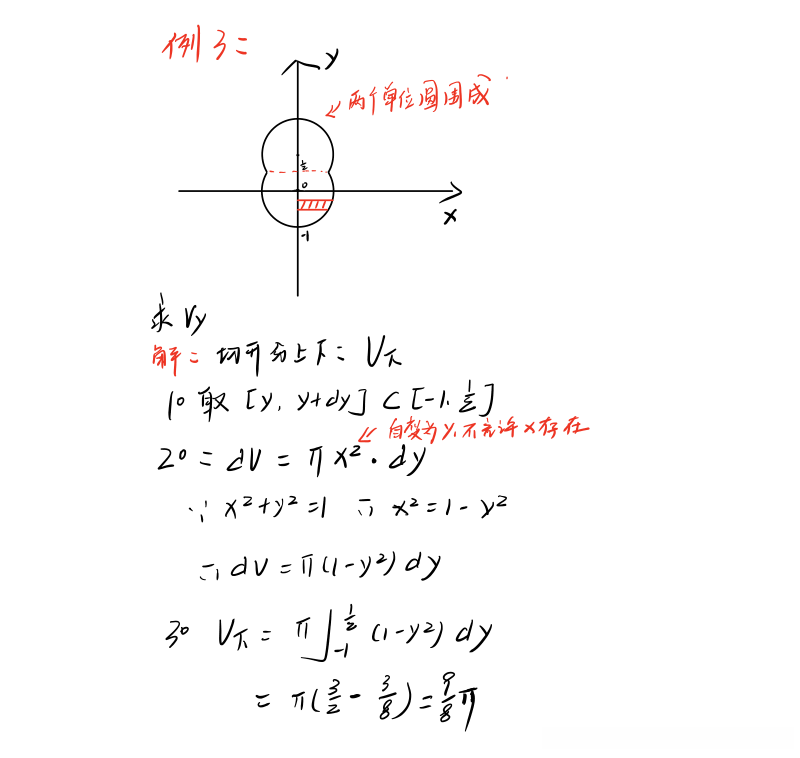 例3:
y
两个单位圆围成
1/2
0
x
-1
求 Vy
解: 切开分上下: V下
1° 取 [y, y+dy] ⊂ [-1, 1/2]
自变为 y, 不允许 x 存在
2° = dV = πx²·dy
∵ x²+y²=1 ∴ x²=1-y²
∴ dV = π(1-y²)dy
3° V下 = π∫_{-1}^{1/2} (1-y²) dy
= π(3/2 - 3/8) = 9/8 π